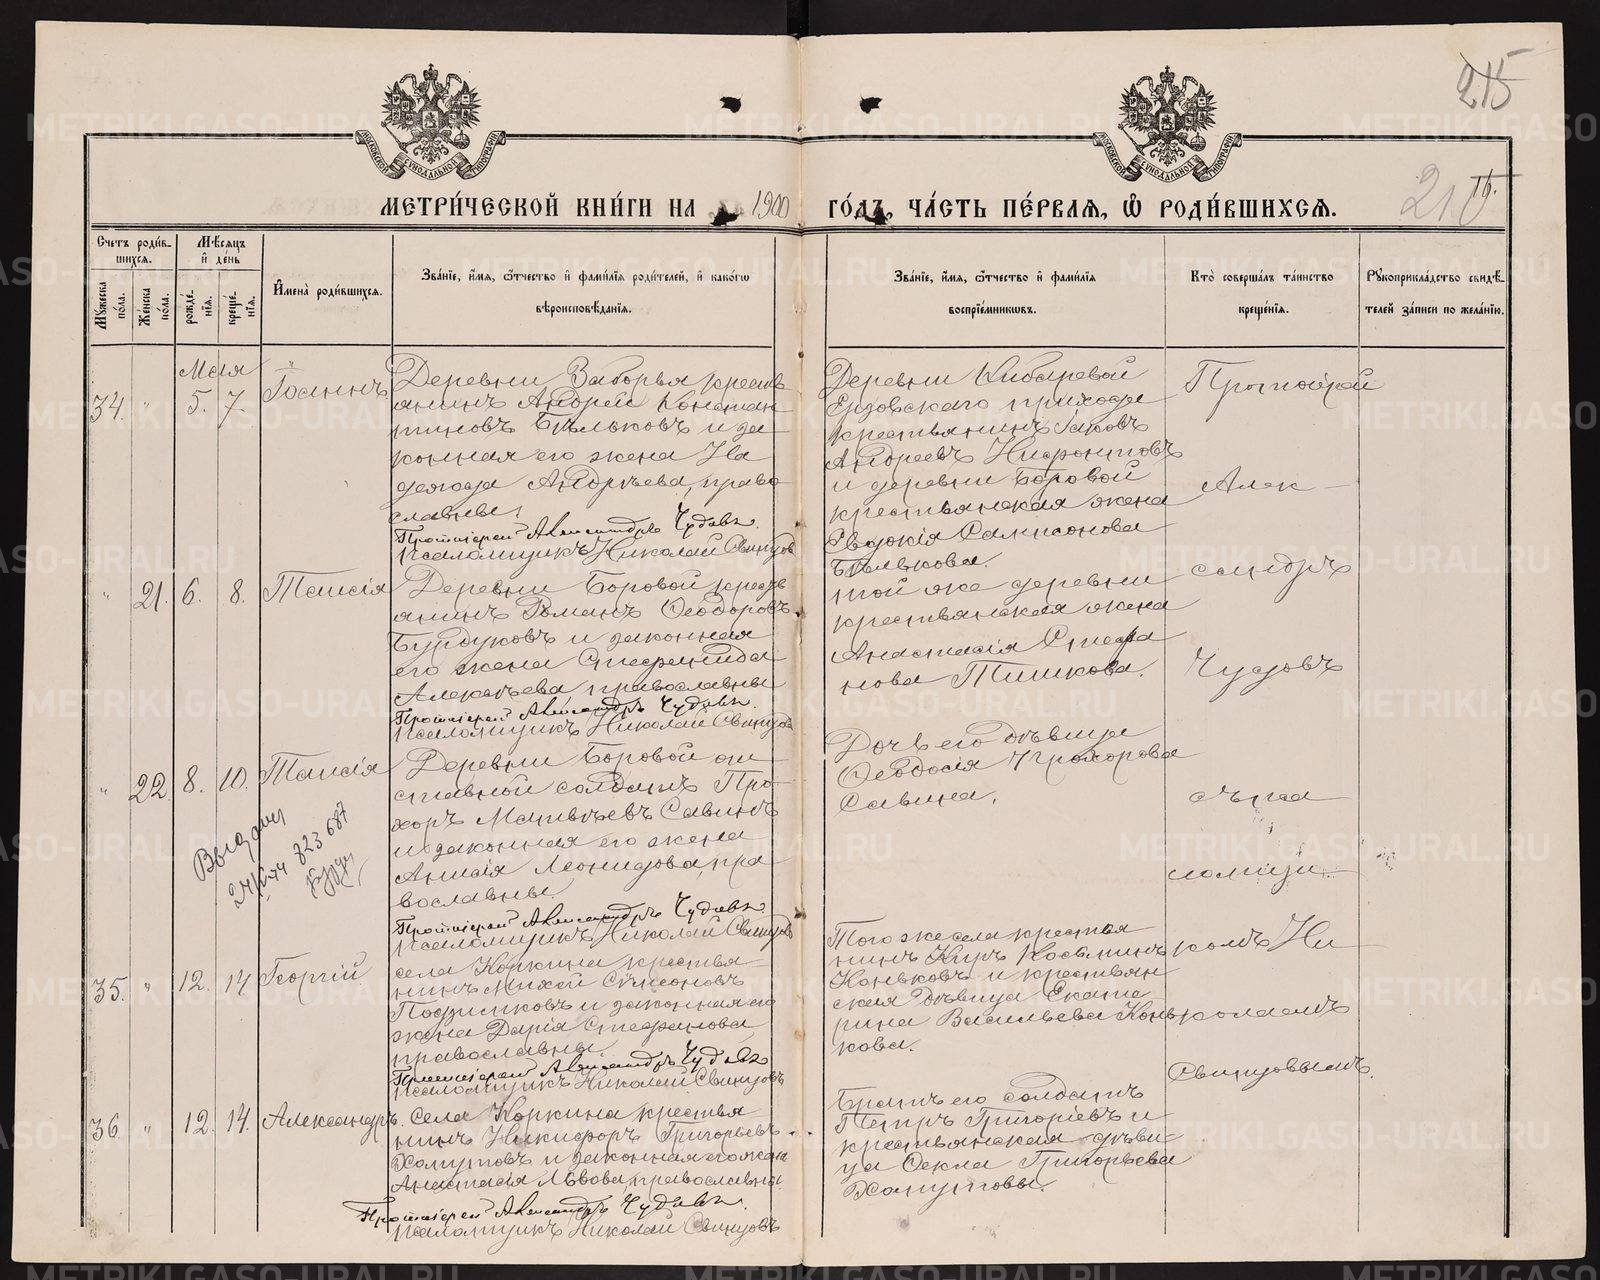 215
215
МОСКОВСКОЙ СУНОДАЛЬНОЙ ТИПОГРАФІИ
МОСКОВСКОЙ СУНОДАЛЬНОЙ ТИПОГРАФІИ
МЕТРИ́ЧЕСКОЙ КНИ́ГИ НА 1900 ГО́ДЪ, ЧА́СТЬ ПЕ́РВАЯ, Ѡ РОДИ́ВШИХСЯ.
Счетъ роди́вшихся.
Му́жеска по́ла.
Же́нска по́ла.
Мѣ́сяцъ и҆ де́нь
рожде́нїя.
креще́нїя.
И҆мена̀ роди́вшихся.
Зва́нїе, и҆́мя, ѻ҆́тчество и҆ фами́лїя роди́телей, и҆ како́гѡ вѣроисповѣ́данїя.
Зва́нїе, и҆́мя, ѻ҆́тчество и҆ фами́лїя воспрїе́мникѡвъ.
Кто̀ соверша́лъ та́инство креще́нїя.
Рꙋкоприкла́дство свидѣ́телей за́писи по жела́нїю.
Мая
34. " 5. 7. Іоаннъ
Деревни Заборья кресть
янинъ Андрей Констан
тиновъ Бѣльковъ и за
конная его жена На
дежда Андрѣева, право
славные
Протоіерей Александръ Чудовъ.
Псаломщикъ Николай Свинцовъ
Деревни Кибаревой
прихода
крестьянинъ Іаковъ
Андреевъ Нифонтовъ
и деревни Боровой
крестьянская жена
Евдокія Сампсонова
Бѣлькова.
" 21. 6. 8. Таисія
Деревни Боровой кресть
янинъ Романъ Ѳеодоровъ
Бурдуковъ и законная
его жена Стефанида
Алексѣева, православны
Протоіерей Александръ Чудовъ.
Псаломщикъ Николай Свинцовъ
той же деревни
крестьянская жена
Анастасія Стефа
нова Тишкова.
" 22. 8. 10. Таисія
Деревни Боровой от
ставной солдатъ Про
хоръ Матвѣевъ Савинъ
и законная его жена
Анисія Леонидова, пра
вославны.
Протоіерей Александръ Чудовъ.
Псаломщикъ Николай Свинцовъ
Дочь его дѣвица
Ѳеодосія Прохорова
Савина.
823687
35. " 12. 14. Георгій
села Коркина крестья
нинъ Михей Симеоновъ
и законная его
жена Дарія Стефанова,
православны.
Протоіерей Александръ Чудовъ
Псаломщикъ Николай Свинцовъ
Того же села крестья
нинъ Киръ Косминъ
Коньковъ и крестьян
ская дѣвица Екате
рина Васильева Конь
кова.
36. " 12. 14. Александръ.
Села Коркина крестья
нинъ Никифоръ Григорьевъ
Хомутовъ и законная его жена
Анастасія Львова, православны.
Протоіерей Александръ Чудовъ.
Псаломщикъ Николай Свинцовъ
Братъ его солдатъ
Петръ Григоріевъ и
крестьянская дѣви-
ца Ѳекла Григорьева
Хомутовы.
Протоіерей
Алек
сандръ
Чудовъ
съ пса
ломщи
комъ Ни
колаемъ
Свинцовымъ.
METRIKI.GASO-URAL.RU